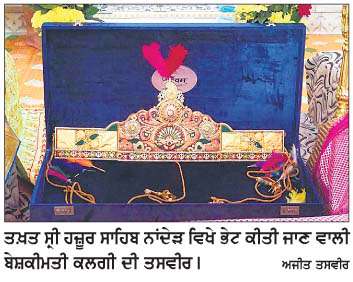 ਤਖ਼ਤ ਸ੍ਰੀ ਹਜ਼ੂਰ ਸਾਹਿਬ ਨਾਂਦੇੜ ਵਿਖੇ ਭੇਟ ਕੀਤੀ ਜਾਣ ਵਾਲੀ
ਬੇਸ਼ਕੀਮਤੀ ਕਲਗੀ ਦੀ ਤਸਵੀਰ। ਅਜੀਤ ਤਸਵੀਰ